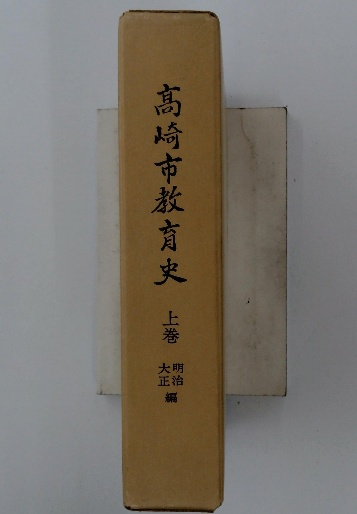 髙崎市教育史
上巻
明治
大正
編